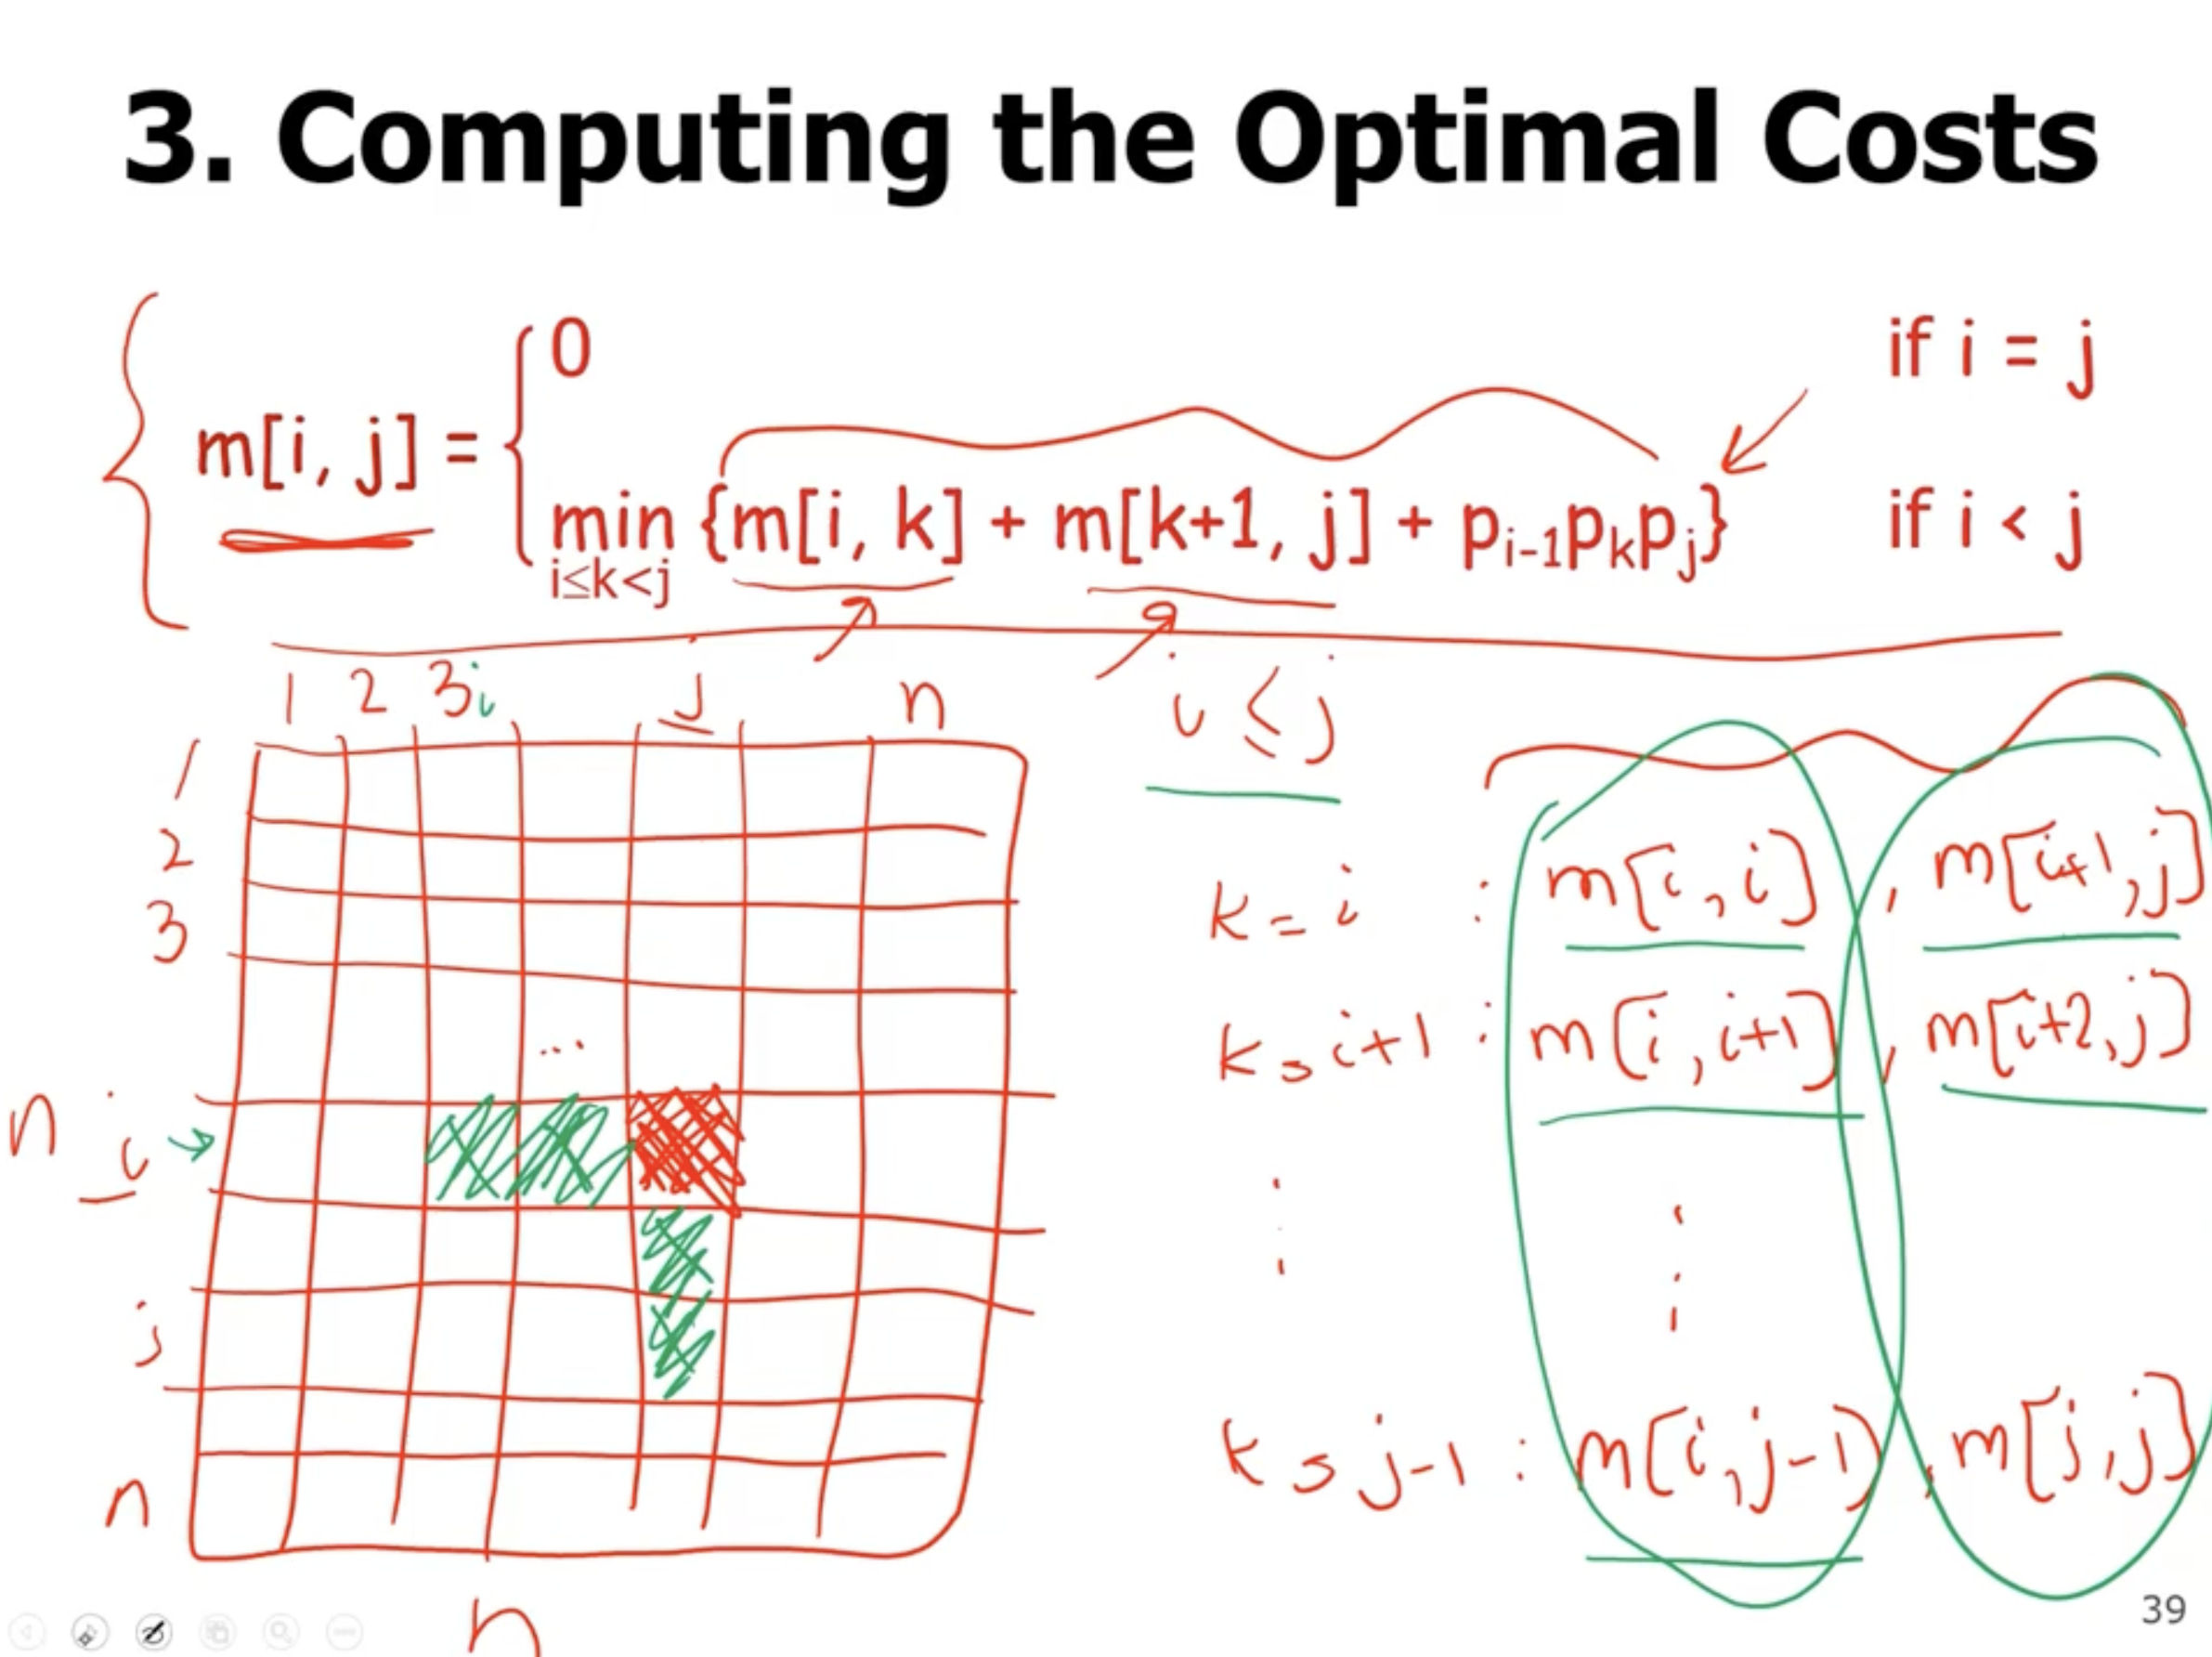 3. Computing the Optimal Costs
0 if i = j
m[i, j] =
min {m[i, k] + m[k+1, j] + pi-1pkpj} if i < j
i≤k<j
1 2 3 i j n
i ≤ j
1
2
3
...
n i
j
n
n
k = i : m[i, i] , m[i+1, j]
k = i+1 : m[i, i+1] , m[i+2, j]
k = j-1 : m[i, j-1] , m[j, j]
39